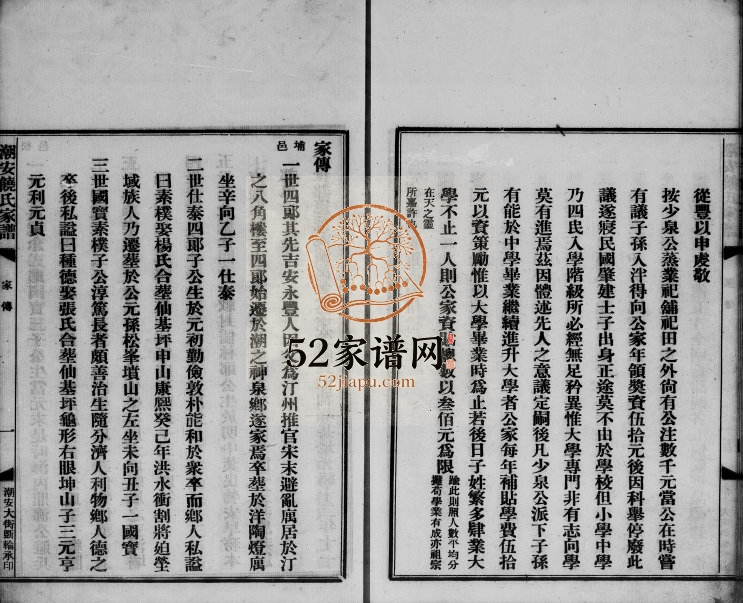 從豐以申虔敬
按少泉公蒸業祀舖祀田之外尙有公注數千元當公在時嘗
有議子孫入泮得向公家年領獎資伍拾元後因科舉停廢此
議遂寢民國肇建士子出身正途莫不由於學校但小學中學
乃四民入學階級所必經無足矜異惟大學專門非有志向學
莫有進焉茲因體述先人之意議定嗣後凡少泉公派下子孫
有能於中學畢業繼續進升大學者公家每年補貼學費伍拾
元以資策勵惟以大學畢業時爲止若後日子姓繁多肄業大
學不止一人則公家資 數以叁佰元爲限
踰此則照人數平均分
攤苟學業有成亦祖宗
在天之靈
所嘉許
家傳
埔邑
一世四郎其先吉安永豐人因 爲汀州推官宋末避亂寓居於汀
之八角樓至四郎始遷於潮之神泉鄉遂家焉卒塟於洋陶燈厲
坐辛向乙子一仕泰
二世仕泰四郎子公生於元初勤儉敦朴能和於衆卒而鄉人私謚
曰素樸娶楊氏合塟仙基坪申山康熙癸己年洪水衝割將廹塋
域族人乃遷塟於公元孫松峯墳山之左坐未向丑子一國寶
三世國寶素樸子公淳篤長者頗善治生隨分濟人利物鄉人德之
卒後私謚曰種德娶張氏合塟仙基坪龜形右眼坤山子三元亨
元利元貞
潮安饒氏家譜
家傳
一
潮安大街斷輪承印
52家谱网
52jiapu.com